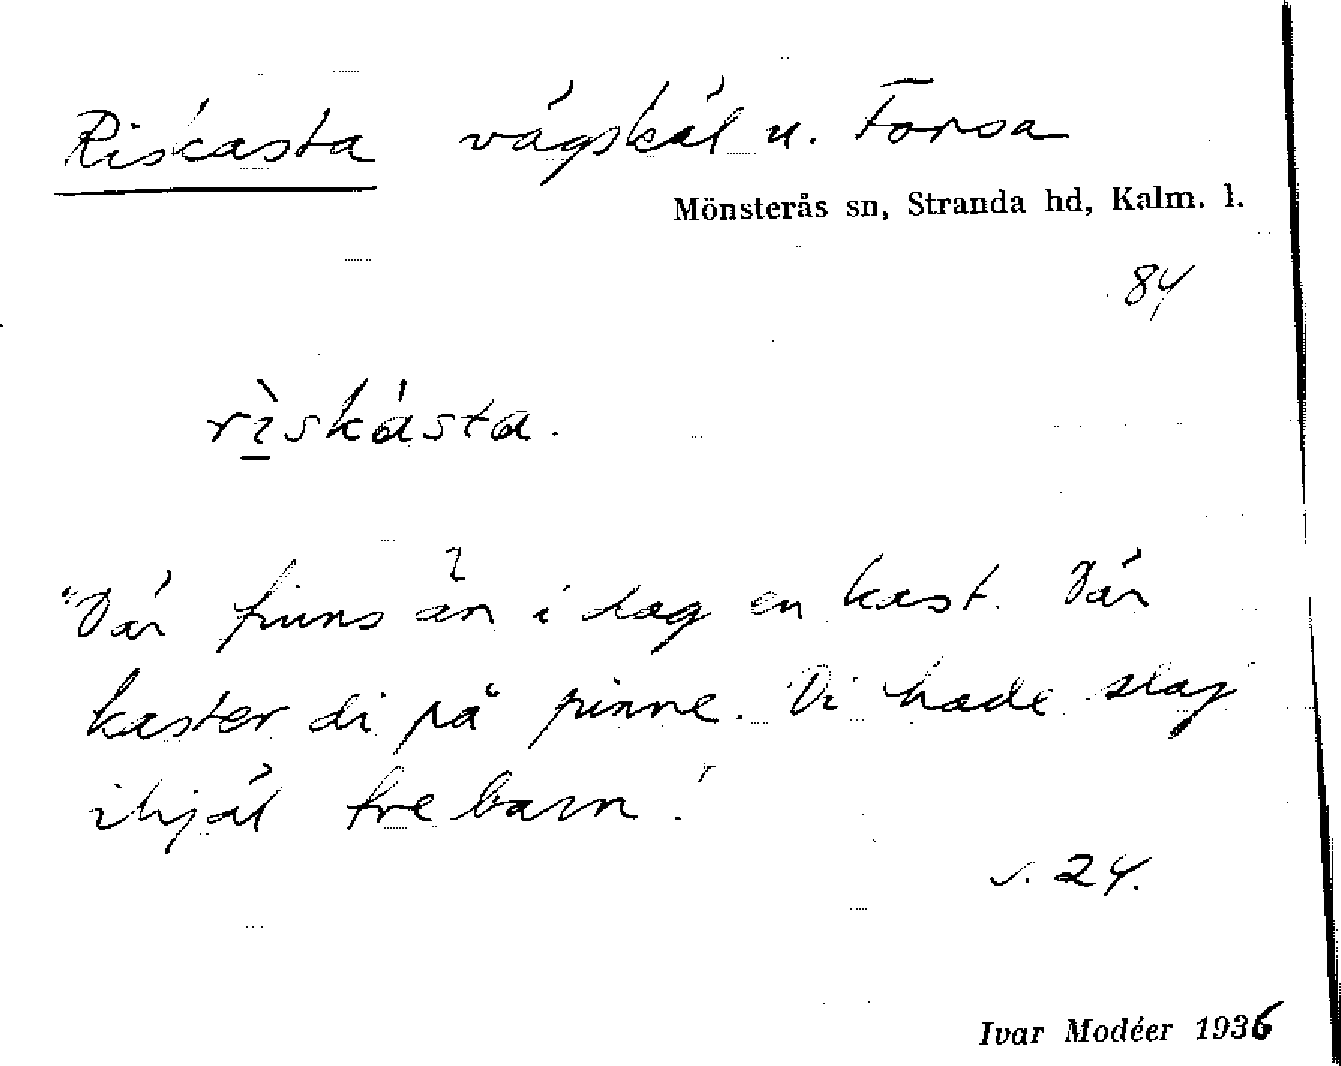 Riskasta vägskäl u. Forsa
Mönsterås sn, Stranda hd, Kalm. l.
84
rìskásta.
"Där finns än i dag en kast. Där
kaster di på pinne. Di hade slaj
ihjäl tre barn."
s. 24.
Ivar Modéer 1936